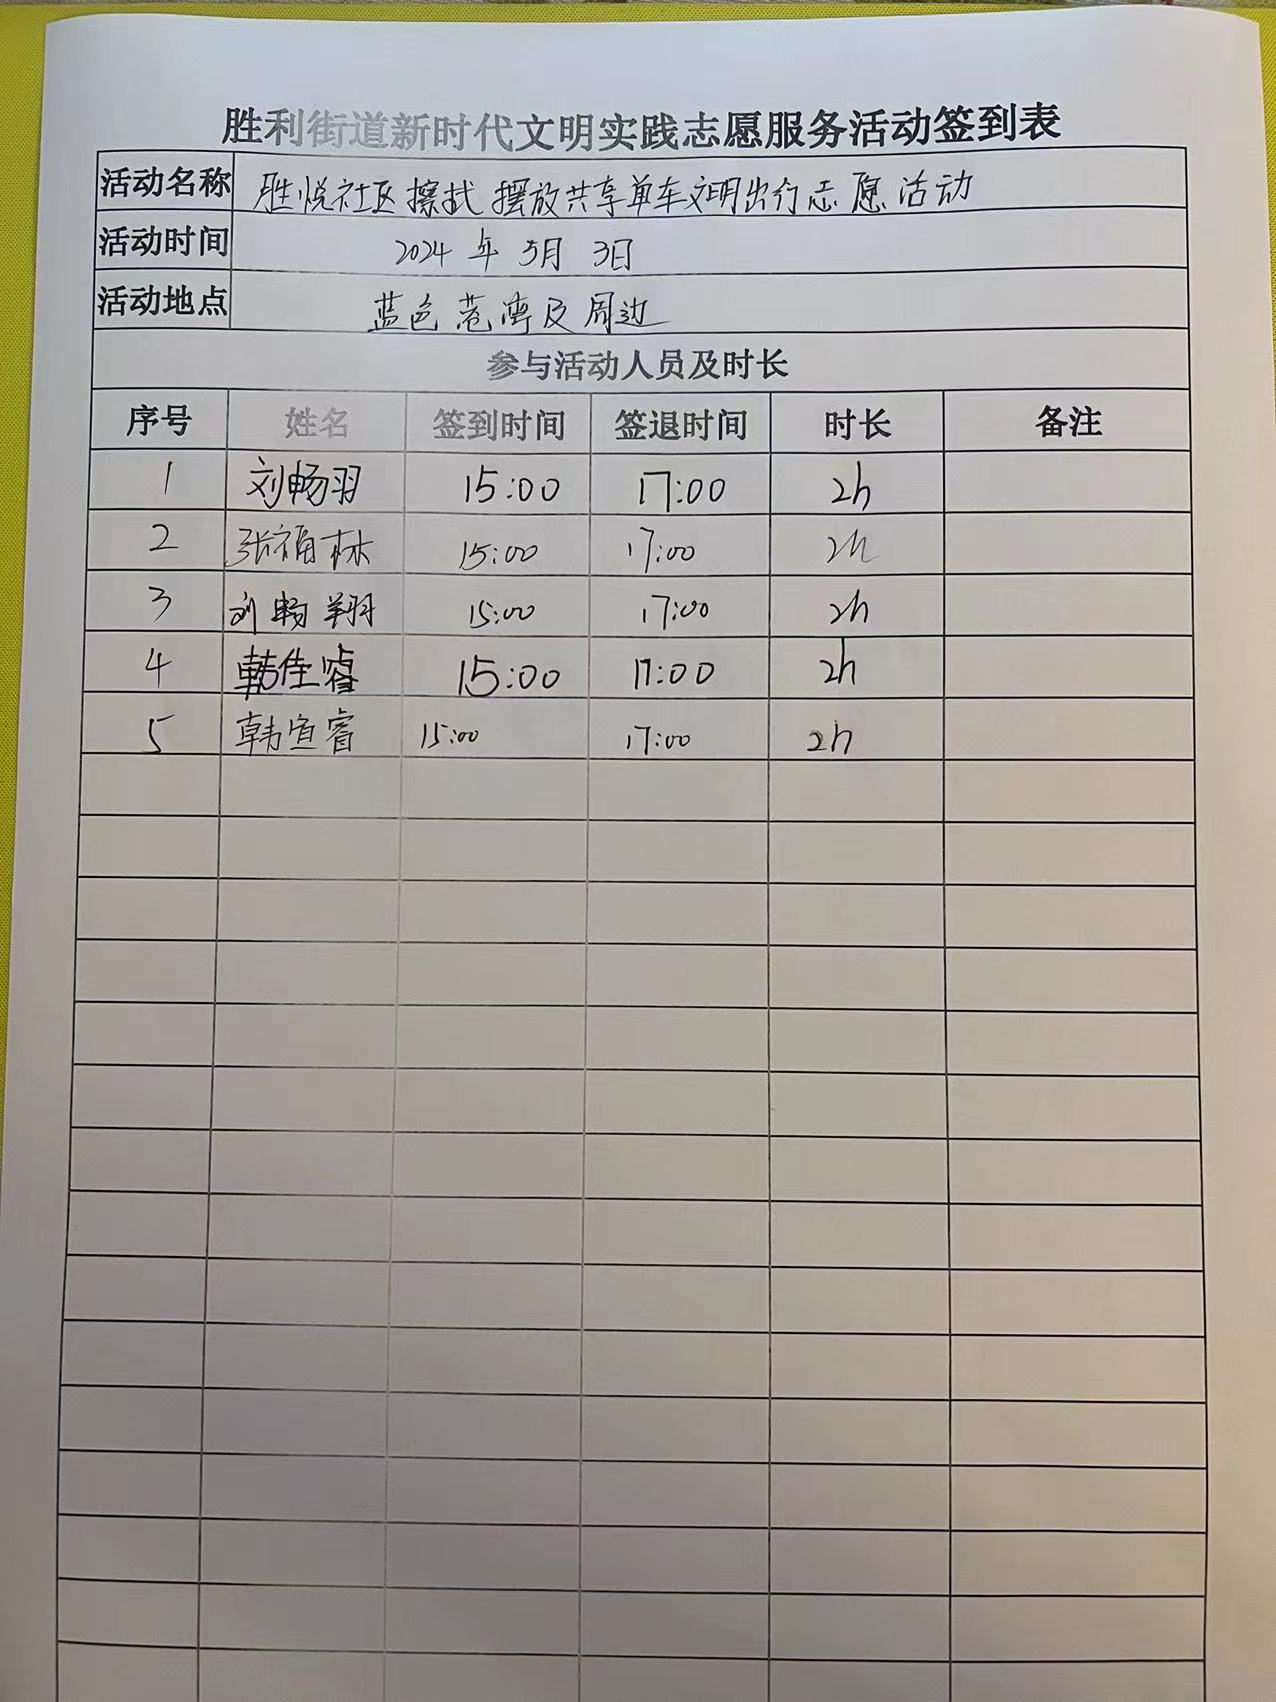 胜利街道新时代文明实践志愿服务活动签到表
活动名称 胜悦社区擦拭 摆放共享单车文明出行志愿活动
活动时间 2024 年 5月 3日
活动地点 蓝色港湾及周边
参与活动人员及时长
序号 姓名 签到时间 签退时间 时长 备注
1 刘畅羽 15:00 17:00 2h
2 张福林 15:00 17:00 2h
3 刘畅翔 15:00 17:00 2h
4 韩佳睿 15:00 17:00 2h
5 韩宜睿 15:00 17:00 2h